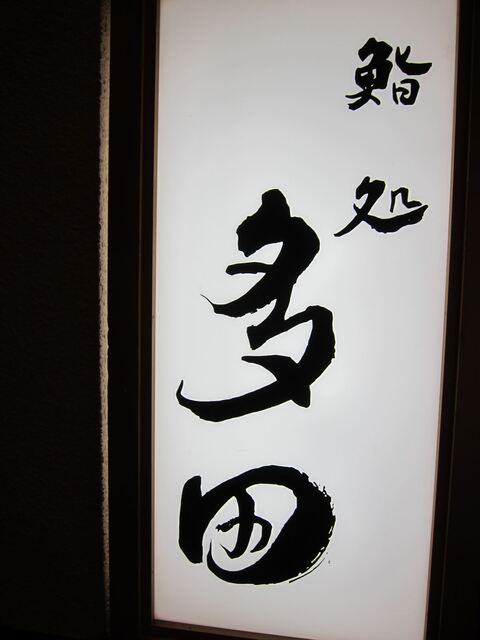 鮨処
多田